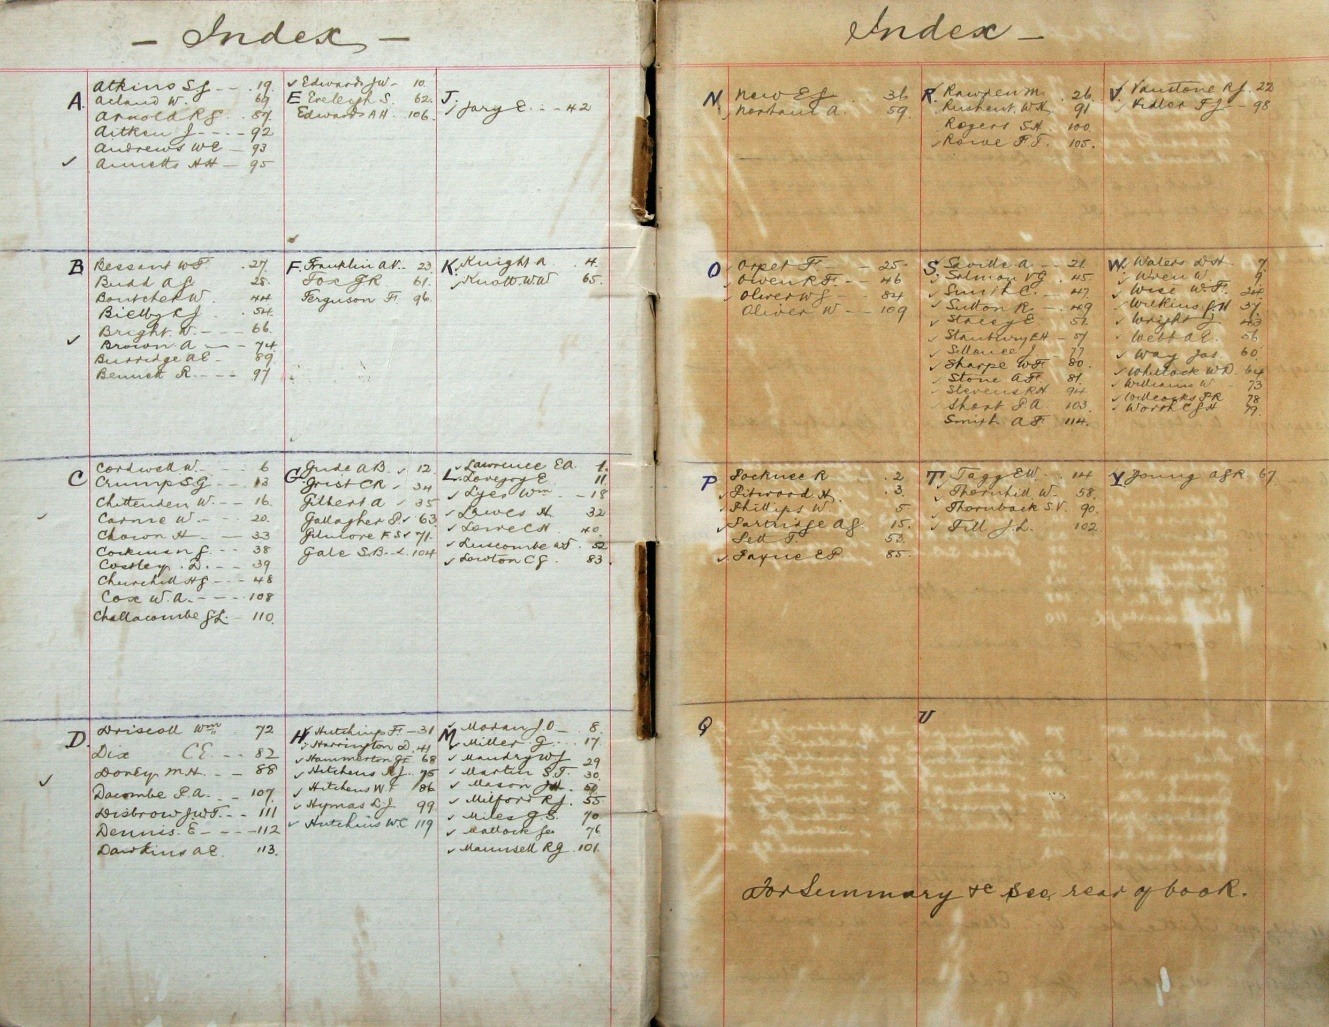 - Index -
A
Atkins S J 19.
Acland W. 69
Arnold R G 87.
Aitken J. 92
Andrews W E 93
Annetts H H 95
E
Edwards J W 10
Eveleigh S. 62
Edwards A H. 106
J
Jary E. 42
B
Bessant W F 27.
Budd A G 28.
Boutcher W. 44
Bielby C J 54.
Bright W. 66
Brown A 74
Burridge A E 89
Bennett R 97
F
Franklin A V. 23
Fox G R 61.
Ferguson F. 96
K.
Knight A 4.
Knott W W 65.
C
Cordwell W. 6
Crump S G 13
Chittenden W. 16.
Carne W. 20.
Chown H 33
Corkman G. 38
Costley D. 39
Churchill H G 48
Cox W. A. 108
Challacombe G L. 110.
G
Gude A B. 12.
Grist C R 34
Gilbert A 35
Gallagher P. 63
Gilmore F S 71.
Gale S. B. 104
L.
Lawrence E A 1.
Lovejoy E 11
Lyes Wm 18
Lawes H. 32
Lowe C H 40.
Luscombe W F. 52
Lowton C G. 83.
D.
Driscoll Wm 72
Dix C E. 82
Dorey M. H. 88
Dacombe P. A. 107.
Disbrow J W F. 111
Dennis. E 112
Dawkins A E. 113.
H
Hutchings F 31
Harrington D. 41
Hammerton G F 68
Hutchens R J. 75
Hutchens W F 86
Hymas L J 99
Hutchins W. C 119
M
Moran J O 8.
Miller G. 17.
Maundry W J 29
Martin S. F. 30.
Mason J H.
Milford R J. 55
Miles G S. 70
Mattock Geo 76
Maunsell R G. 101
Index -
N
New E J 36.
Northam A. 59.
R.
Rawden M. 26.
91
Rogers S H. 100.
Rowe F. F. 105.
V.
Vanstone R J. 22
Vidler F J 98
O
Orpet F. 25.
Owen R F. 46
Oliver W J 84
Oliver W 109
S.
Saville A 21.
Salmon V G 45
Smith C. 47.
Sutton R. 49
Stacey E 51.
Stanbury E H 57
Sillance J. 77
Sharpe W F. 80.
Stone A F. 81.
Stevens R H 94
Short P A. 103.
Smith A F. 114.
W.
Waters D H. 7.
Wren W. 9.
Wise W. F. 24
Wilkins G H 37
Wright J. 43
Webb A E. 56
Way Jas. 60
Whitlock W D. 64
Williams W 73
Willcocks P R 78
Worth C G H 79.
P
Pocknee R 2
Pitwood H. 3.
Phillips W 5
Partridge A G. 15.
Pett T. 53.
Payne E P. 85.
T.
Tagg E W. 14
Thornhill W. 58.
Thornback S V. 90.
Till J. L. 102
Y
Young A G R. 67
Q
U
For Summary &c see rear of book.